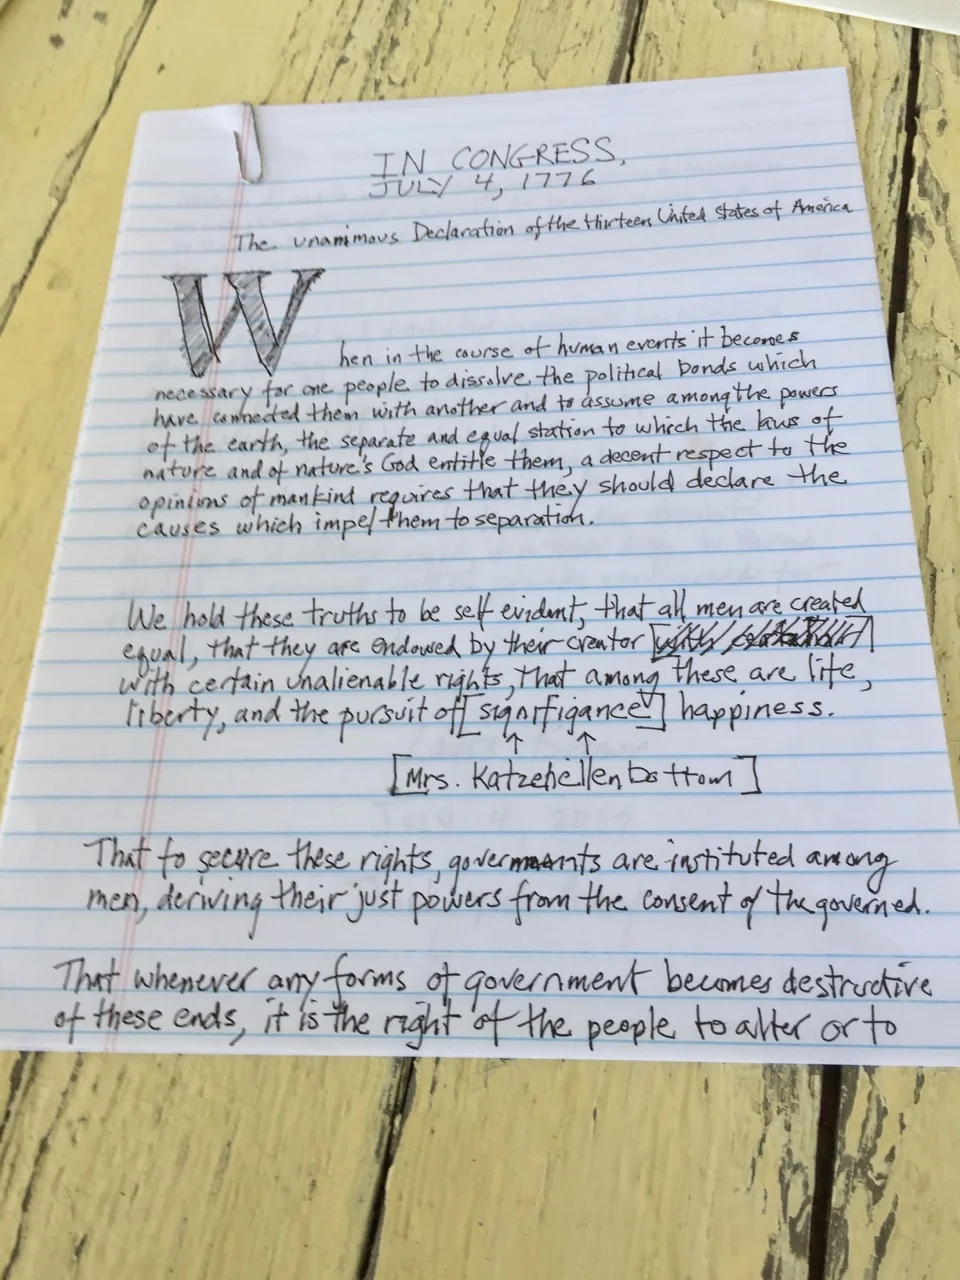 IN CONGRESS,
JULY 4, 1776
The unanimous Declaration of the thirteen United States of America
When in the course of human events it becomes
necessary for one people to dissolve the political bonds which
have connected them with another and to assume among the powers
of the earth, the separate and equal station to which the laws of
nature and of nature's God entitle them, a decent respect to the
opinions of mankind requires that they should declare the
causes which impel them to separation.
We hold these truths to be self evident, that all men are created
equal, that they are endowed by their creator [
]
with certain unalienable rights, that among these are life,
liberty, and the pursuit of [signifigance] happiness.
↑ ↑
[Mrs. Katzehellenbottom]
That to secure these rights, governments are instituted among
men, deriving their just powers from the consent of the governed.
That whenever any forms of government becomes destructive
of these ends, it is the right of the people to alter or to